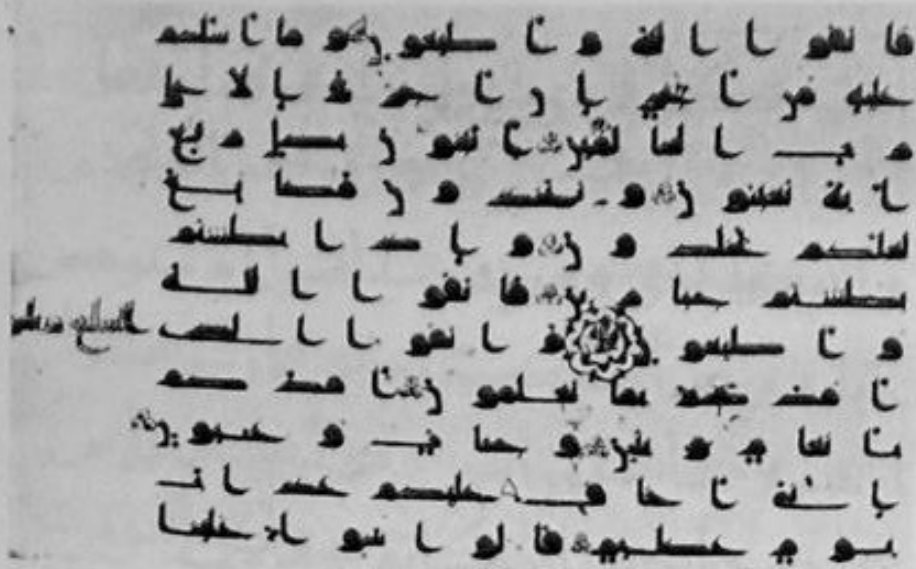 فاتقوا الله واطيعون وما اسلكم
عليه من اجر ان اجرى الا على
رب العلمين اتبنون بكل ريع
اية تعبثون وتتخذون مصنع
لعلكم تخلدون واذا بطشتم
بطشتم جبارين فاتقوا الله
واطيعون واتقوا الذى
امدكم بما تعلمون امدكم
بانعم وبنين وجنت وعيون
انى اخاف عليكم عذاب
يوم عظيم قالوا سوا علينا